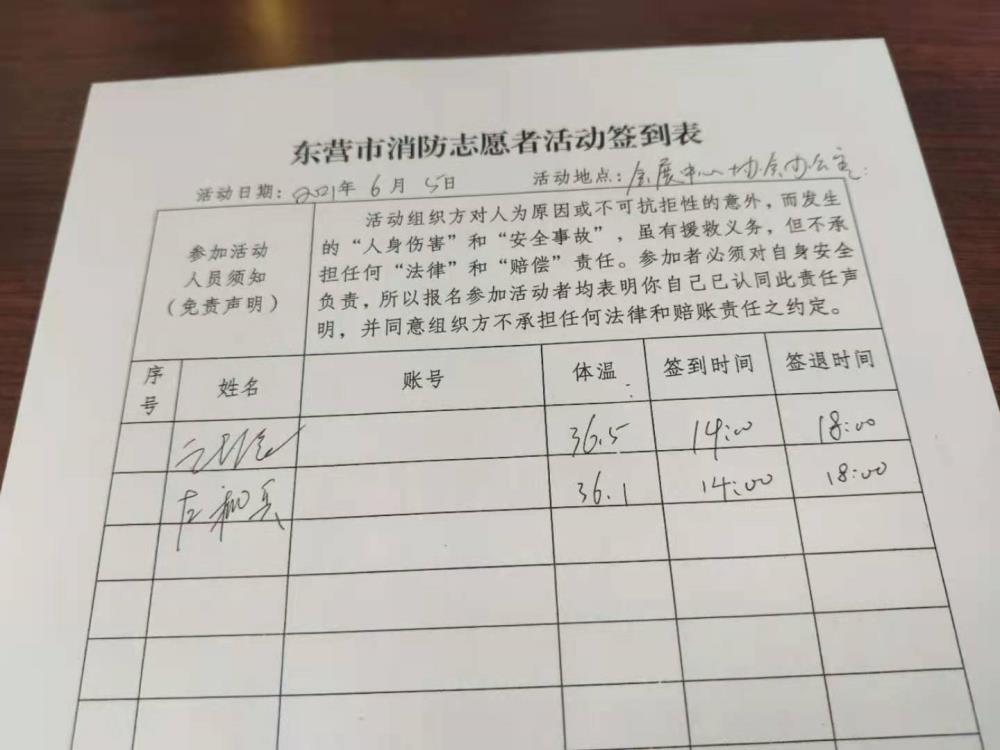 东营市消防志愿者活动签到表
活动日期：2021年 6 月 5日 活动地点：会展中心协会办公室
参加活动
人员须知
（免责声明）
活动组织方对人为原因或不可抗拒性的意外，而发生
的“人身伤害”和“安全事故”，虽有援救义务，但不承
担任何“法律”和“赔偿”责任。参加者必须对自身安全
负责，所以报名参加活动者均表明你自己已认同此责任声
明，并同意组织方不承担任何法律和赔账责任之约定。
序号 姓名 账号 体温 签到时间 签退时间
36.5 14:00 18:00
36.1 14:00 18:00